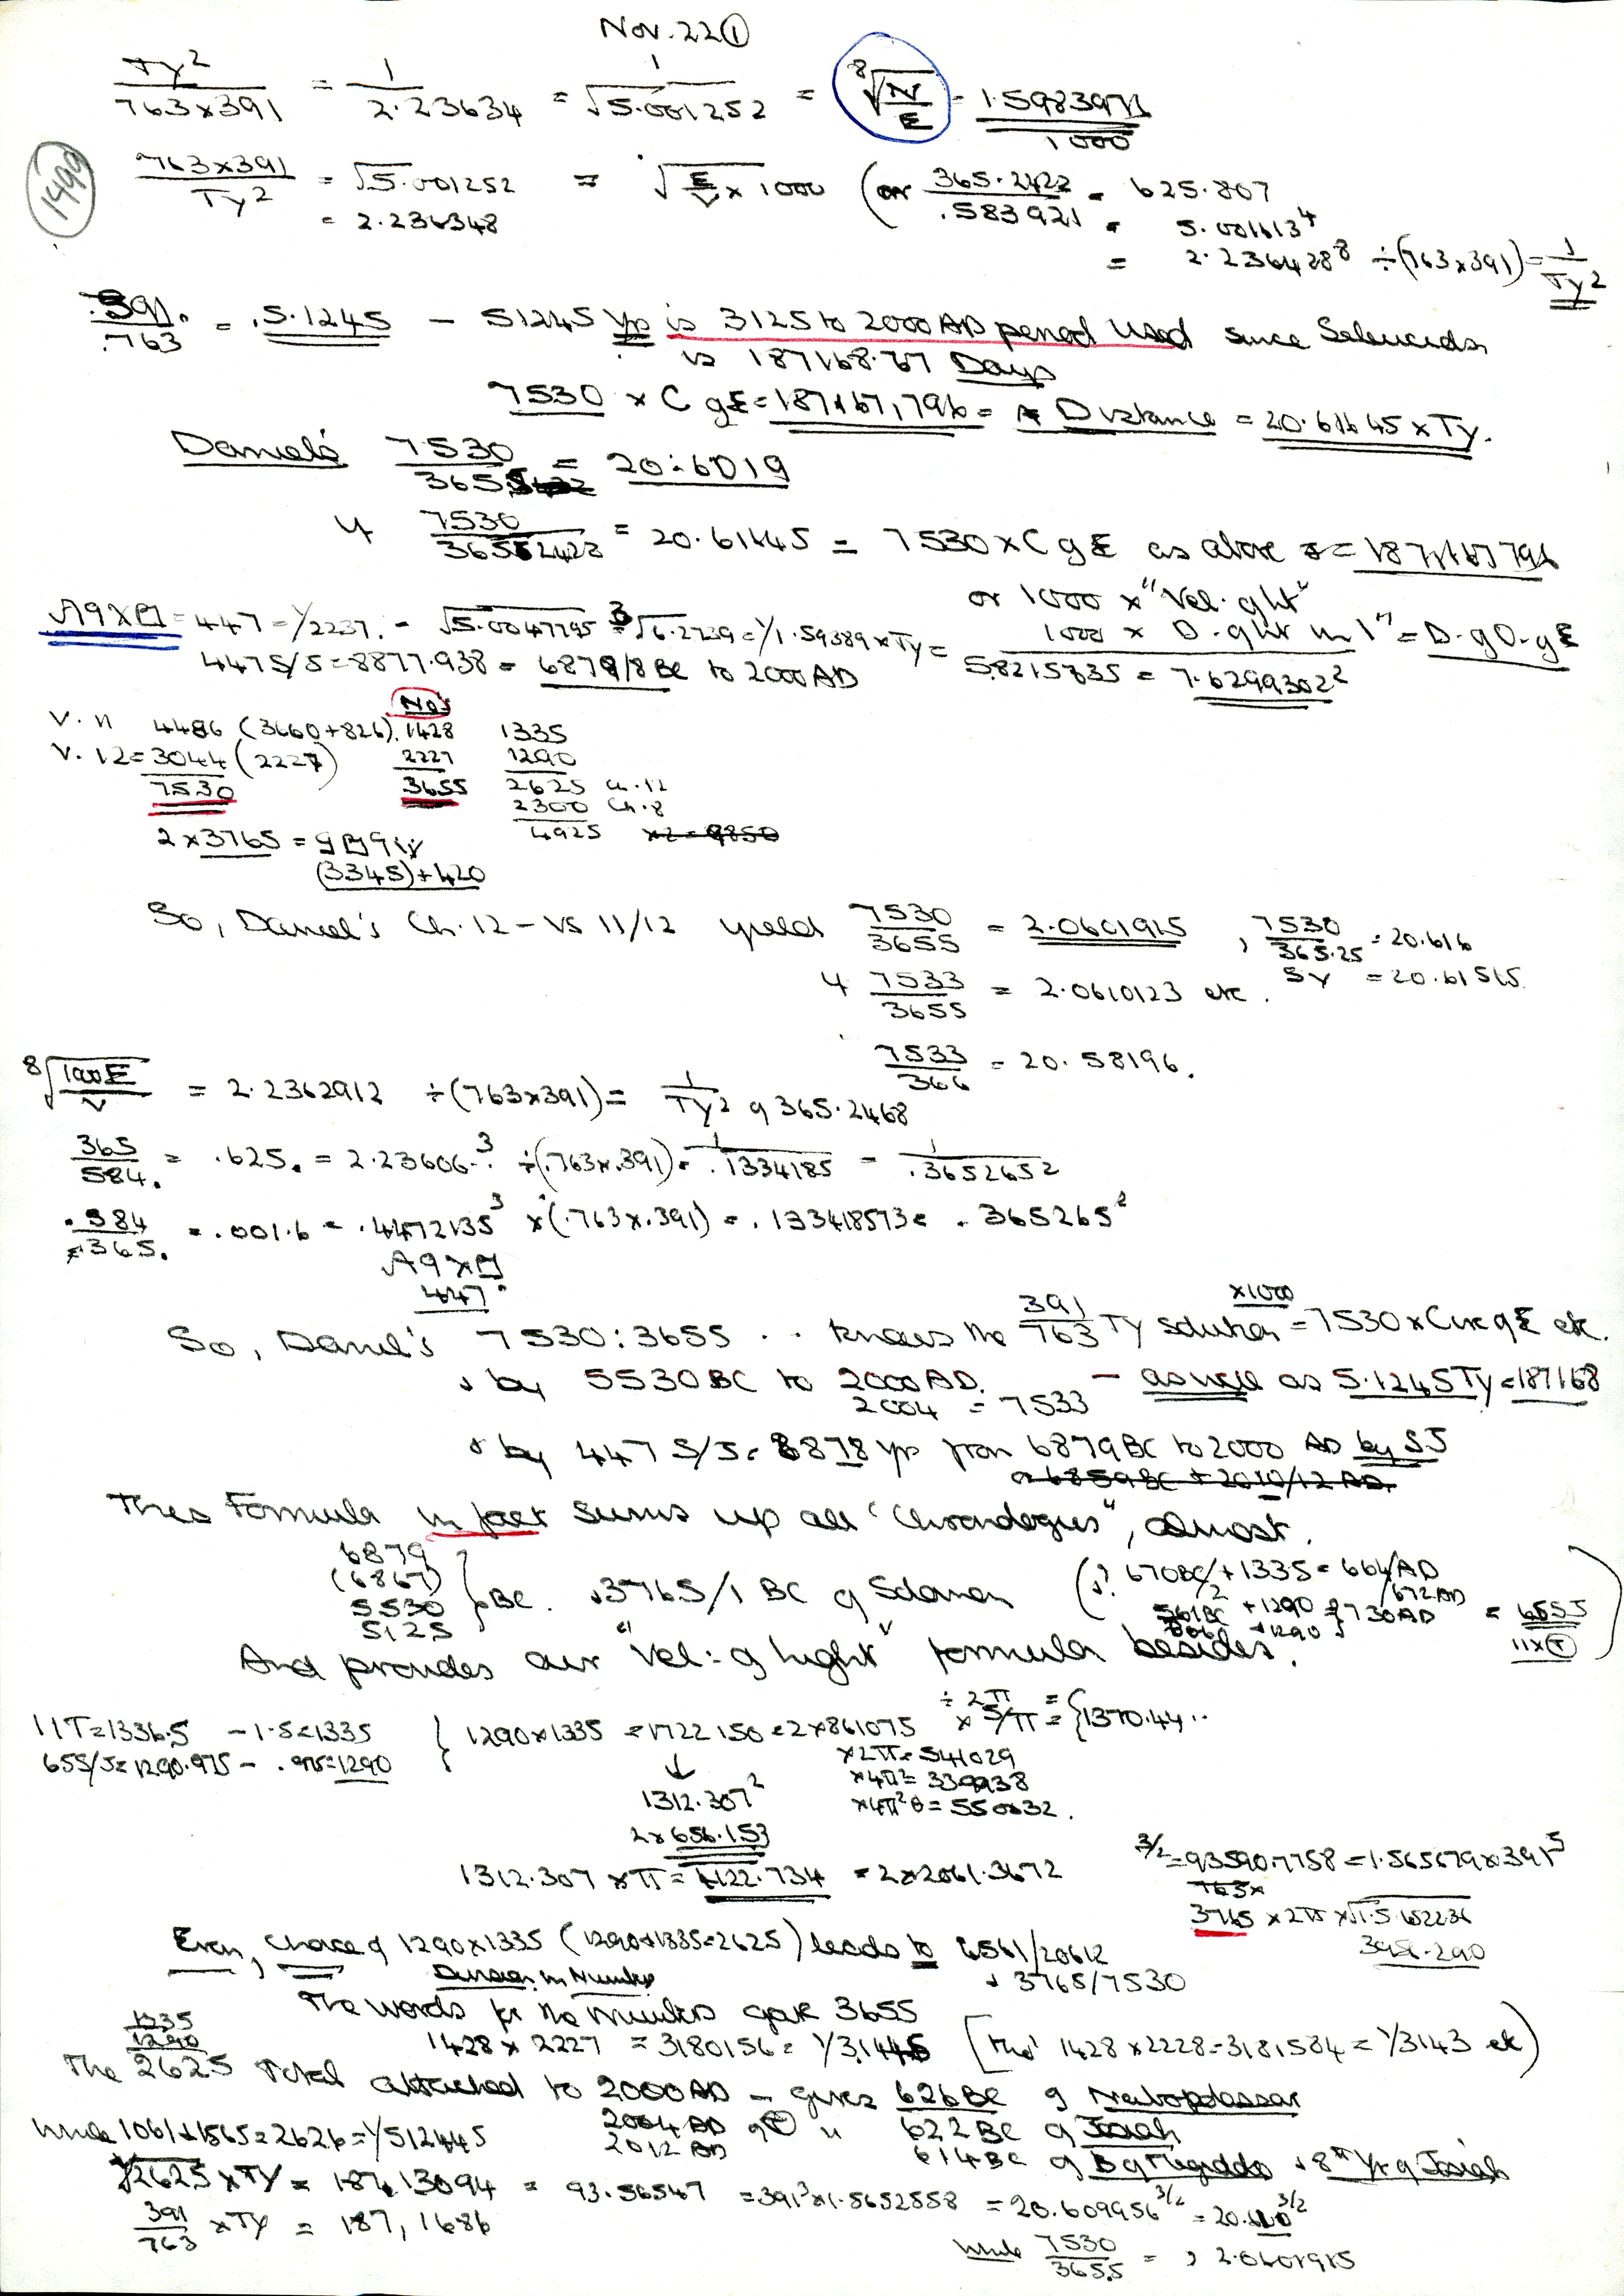 Nov. 22 ①
Ty² / 763×391 = 1 / 2.23634 = 1 / √5.001252 = ⁸√(N/E) = 1.598397 / 1000
1499
763×391 / Ty² = √5.001252 = √(E/V × 1000) (or 365.2422 / .583921 = 625.807
= 2.236348 = 5.001613⁴
= 2.236428⁸ ÷ (763×391) = 1/Ty²
.391. / .763 = .5.1245 – 51245 Yrs is 3125 to 2000 AD period used since Seleucids
is 187168.77 Days
7530 × C g E = 187167,796 = A Distance = 20.61645 × Ty.
Daniel's 7530 / 365 = 20.6019
7530 / 365.2422 = 20.61645 = 7530 × C g E as above = 187,167796
or 1000 × "Vel. g ht"
= 447 = 1/2237. = √5.0047795 = ³√ 6.2739 = 1/1.59389 × Ty = 1000 × D. g ht in 1" = D. g O. g E
4475/5 = 8877.938 = 6879/8 BC to 2000 AD 58215835 = 7.6299302²
No's
V. 11 4486 (3660+826) 1428 1335
V. 12 = 3044 (2227) 2227 1290
7530 3655 2625 Ch. 12
2300 Ch. 8
4925 ×2 = 9850
2 × 3765 =
(3345)+420
So, Daniel's Ch. 12 – vs 11/12 yield 7530 / 3655 = 2.0601915 , 7530 / 365.25 = 20.616
7533 / 3655 = 2.0610123 etc. SY = 20.61515
7533 / 366 = 20.58196.
⁸√(1000E / V) = 2.2362912 ÷ (763×391) = 1/Ty² g 365.2468
365 / 584. = .625. = 2.23606.³ ÷ (.763×.391) = 1/.1334185 = 1/.365265²
.584 / .365. = .001.6 = .4472135³ × (.763×.391) = .133418573 = .365265²
447
So, Daniel's 7530 : 3655 . . knows the 391/763 Ty solution ×1000 = 7530 × Circ g E etc.
& by 5530 BC to 2000 AD. – as well as 5.1245 Ty = 187168
2004 = 7533
& by 447 5/5 = 8878 yrs from 6879 BC to 2000 AD by SJ
This Formula in fact sums up all "Chronologies", almost.
6879
(6867)
5530
5125
} BC. & 3765/1 BC g Solomon (&? 670BC/2 + 1335 = 664/AD
/672 AD
561BC +1290 } 730AD = 6555
+1290
11×T )
And provides our "Vel: g light" formula besides.
11T = 1336.5 – 1.5 = 1335 { 1290×1335 = 1722150 = 2×861075 ÷ 2π × 5/π = {1370.44..
655/5 = 1290.975 – .975 = 1290
×2π = 541029
×4π² = 339938
×4π²θ = 550032.
1312.307²
2×656.153
1312.307 × π = 4122.734 = 2×2061.3672
3/2 = 93590.7758 = 1.565679×391⁵
763×
3765 × 2π × √1.5652236
398.290
Even, choice g 1290×1335 (1290+1335=2625) leads to 6561/20612
& 3765/7530
The words for the numbers gave 3655
1428 × 2227 = 3180156 = 1/3.1445 [tho' 1428×2228 = 3181584 = 1/3143 etc)
1335
1290
The 2625 Total attached to 2000 AD – gives 626 BC g Nabopolassar
2004 AD g " 622 BC g Josiah
2012 AD 614 BC g B g Megiddo & 8th Yr g Josiah
while 1061+1565 = 2626 = 1/512445
√2625 × TY = 187,13094 = 93.56547 = 391³×1.5652558 = 20.609956^3/2 = 20.610^3/2
391 / 763 × TY = 187,1686
while 7530 / 365.5 = , 2.0601915